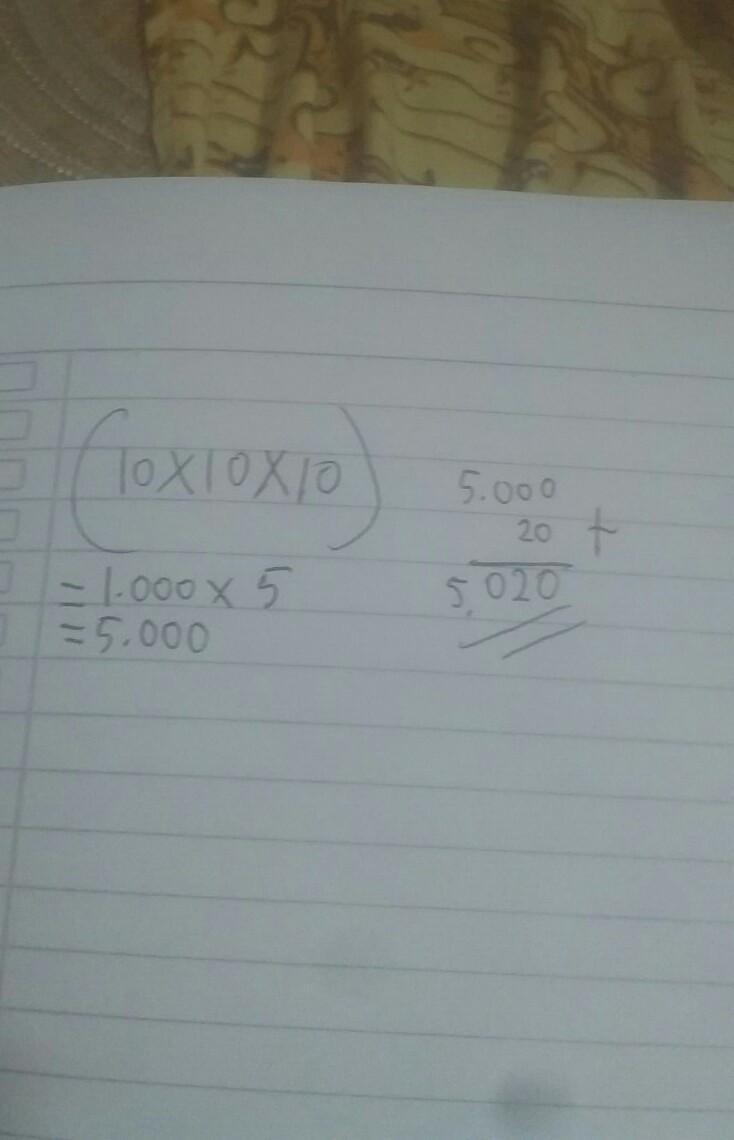 (10X10X10)
= 1.000 x 5
= 5.000
5.000
20 +
5.020